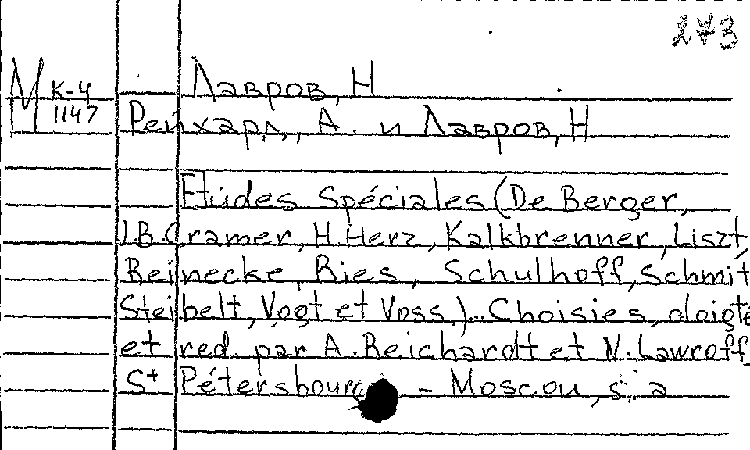 273
М К-4
1147
Лавров, Н
Рейхард, А. и Лавров, Н
Etudes Spéciales (De Berger,
J.B. Cramer, H. Herz, Kalkbrenner, Liszt
Reinecke, Ries, Schulhoff, Schmit
Steibelt, Vogt et Voss.). Choisies, doigté
et red. par A. Reichardt et N. Lawroff
St Pétersbourg - Moscou, s. a